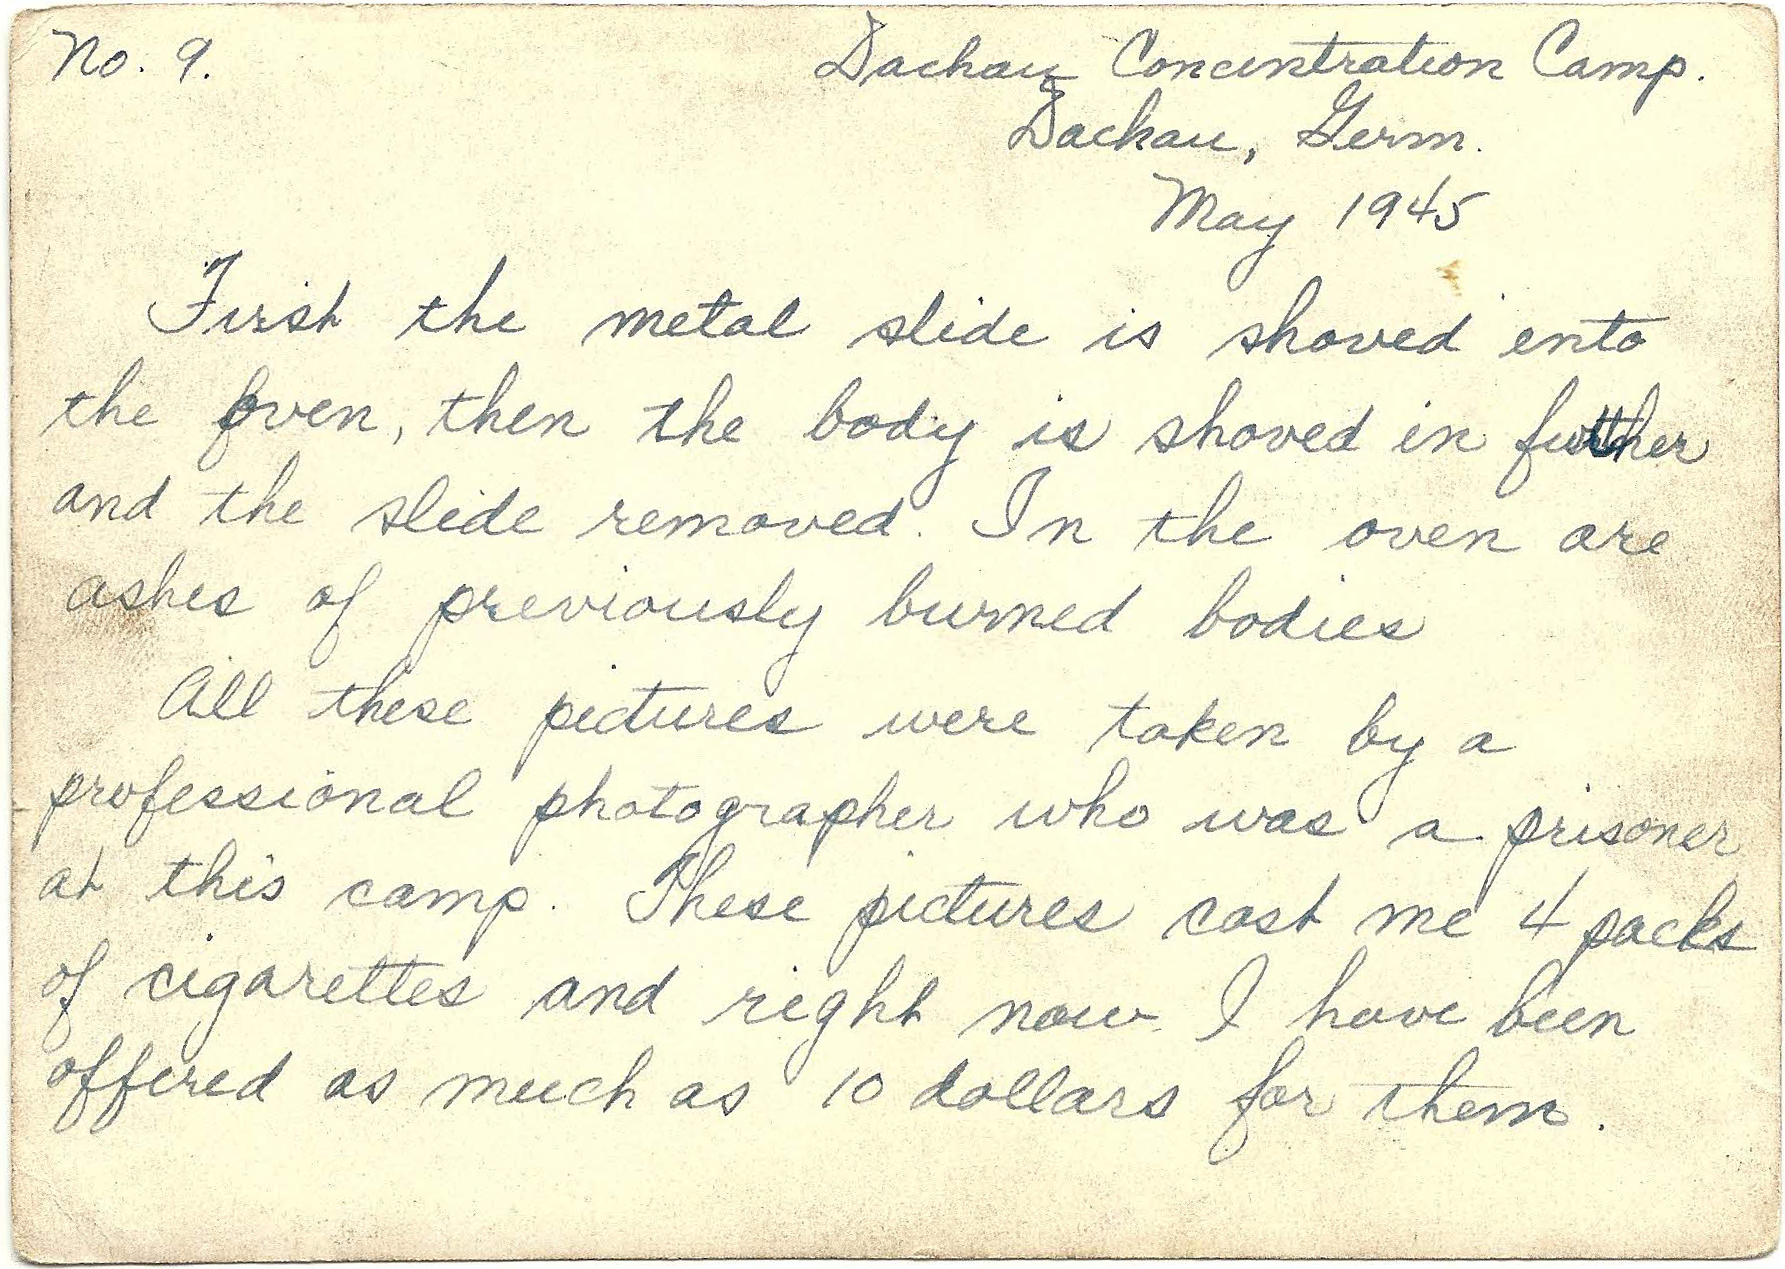 No. 9.
Dachau Concentration Camp.
Dachau, Germ.
May 1945
First the metal slide is shoved into
the oven, then the body is shoved in further
and the slide removed. In the oven are
ashes of previously burned bodies
All these pictures were taken by a
professional photographer who was a prisoner
at this camp. These pictures cost me 4 packs
of cigarettes and right now I have been
offered as much as 10 dollars for them.